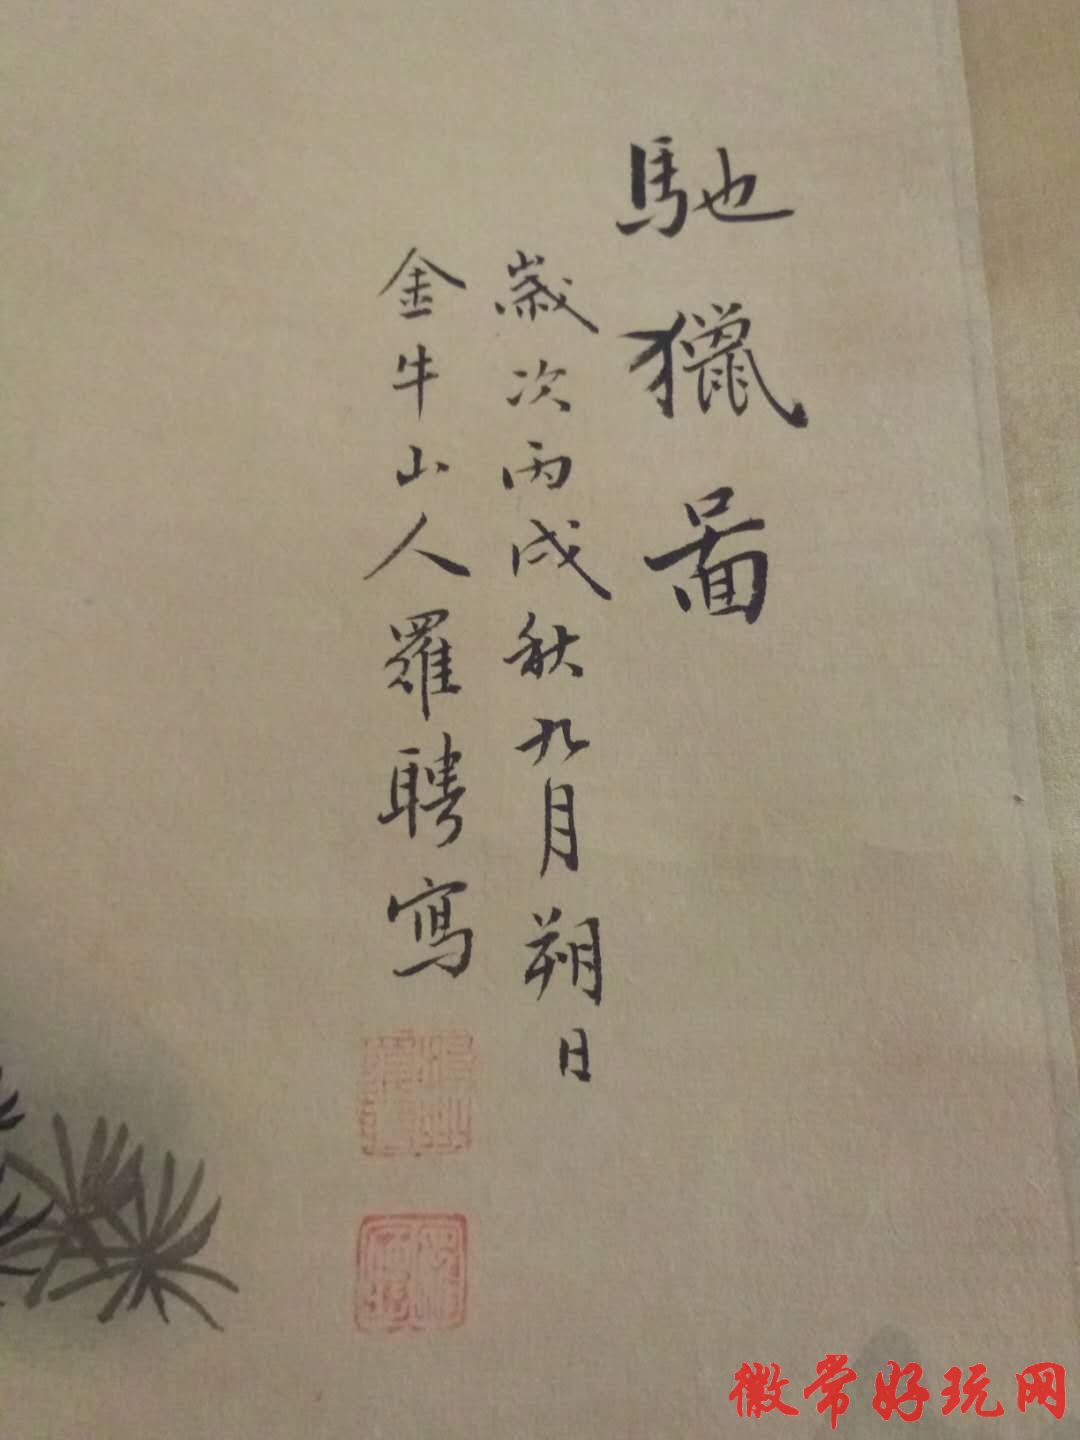 馳獵啚
歲次丙戌秋九月朔日
金牛山人羅聘寫
徽常好玩网